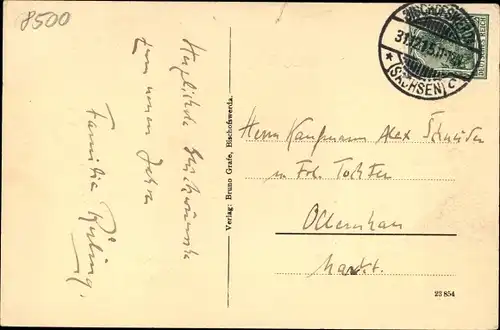 8500
Herzlichste Glückwünsche
zum neuen Jahre
Familie
Verlag: Bruno Grafe, Bischofswerda.
BISCHOFSWERDA
(SACHSEN) c
DEUTSCHES REICH
Herrn Kaufmann Alex Schneider
u Frl. Tochter
Olbernhau
Markt.
23 854